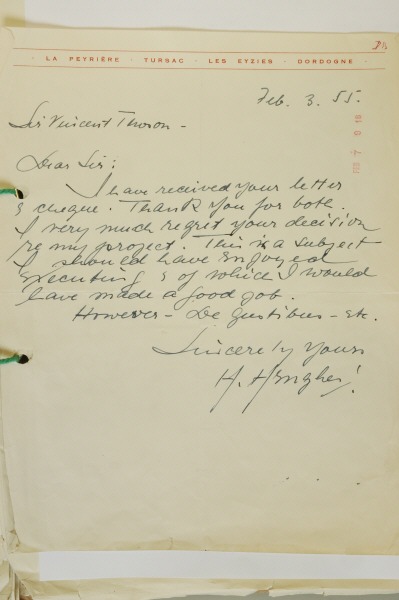 DB
· LA PEYRIÈRE · TURSAC · LES EYZIES · DORDOGNE ·
Feb. 3. 55.
Sir Vincent Thoron -
Dear Sir:
I have received your letter
& cheque. Thank you for both.
I very much regret your decision
re my project. This is a subject
I should have enjoyed
executing & of which I would
have made a good job.
However - De gustibus - etc.
Sincerely yours
H. Henghes